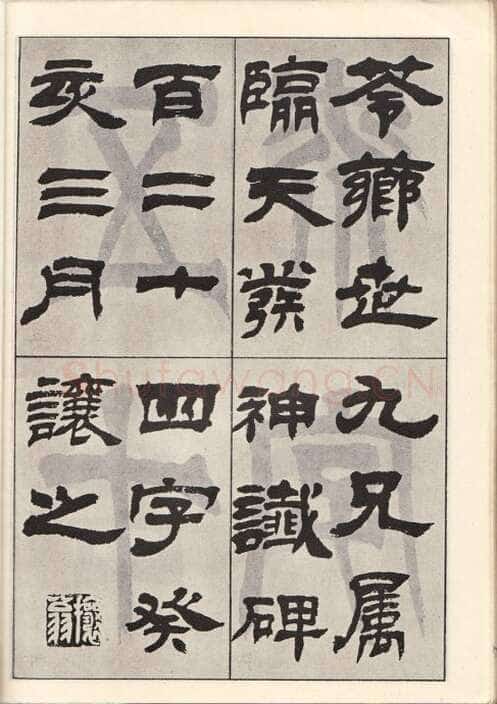 苓薌世九兄属
臨天發神讖碑
百二十四字癸
亥三月讓之
Shufawang.CN